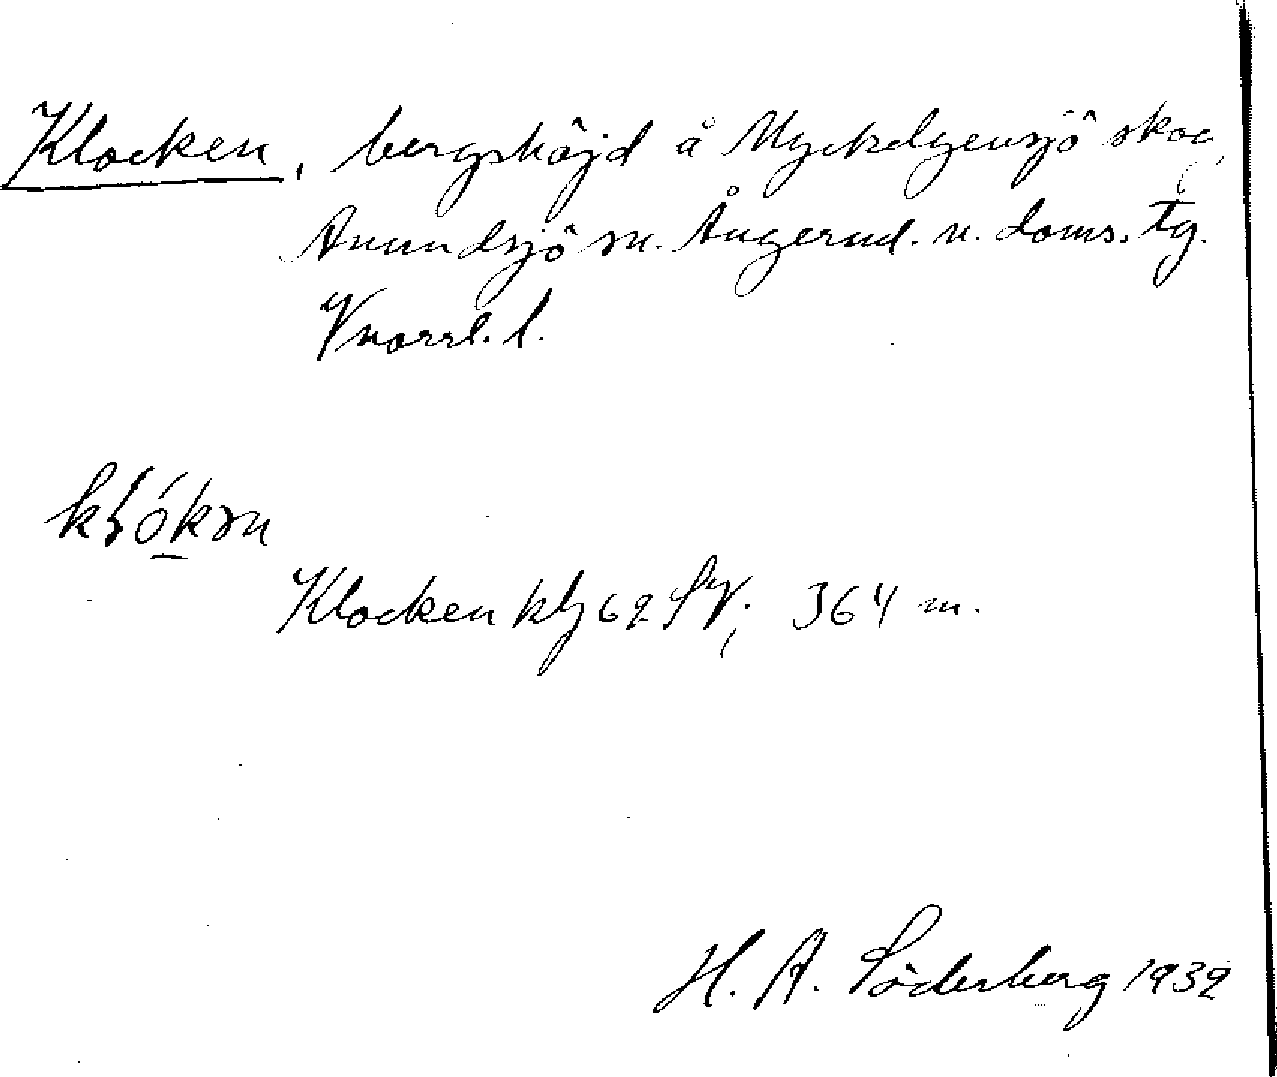 Klocken, bergshöjd å Myckelgensjö skog,
Anundsjö sn. Ångerml. n. doms. tg.
Vnorrl. l.
Klocken kbj 62 SV; 364 m.
H. A. Söderberg 1932